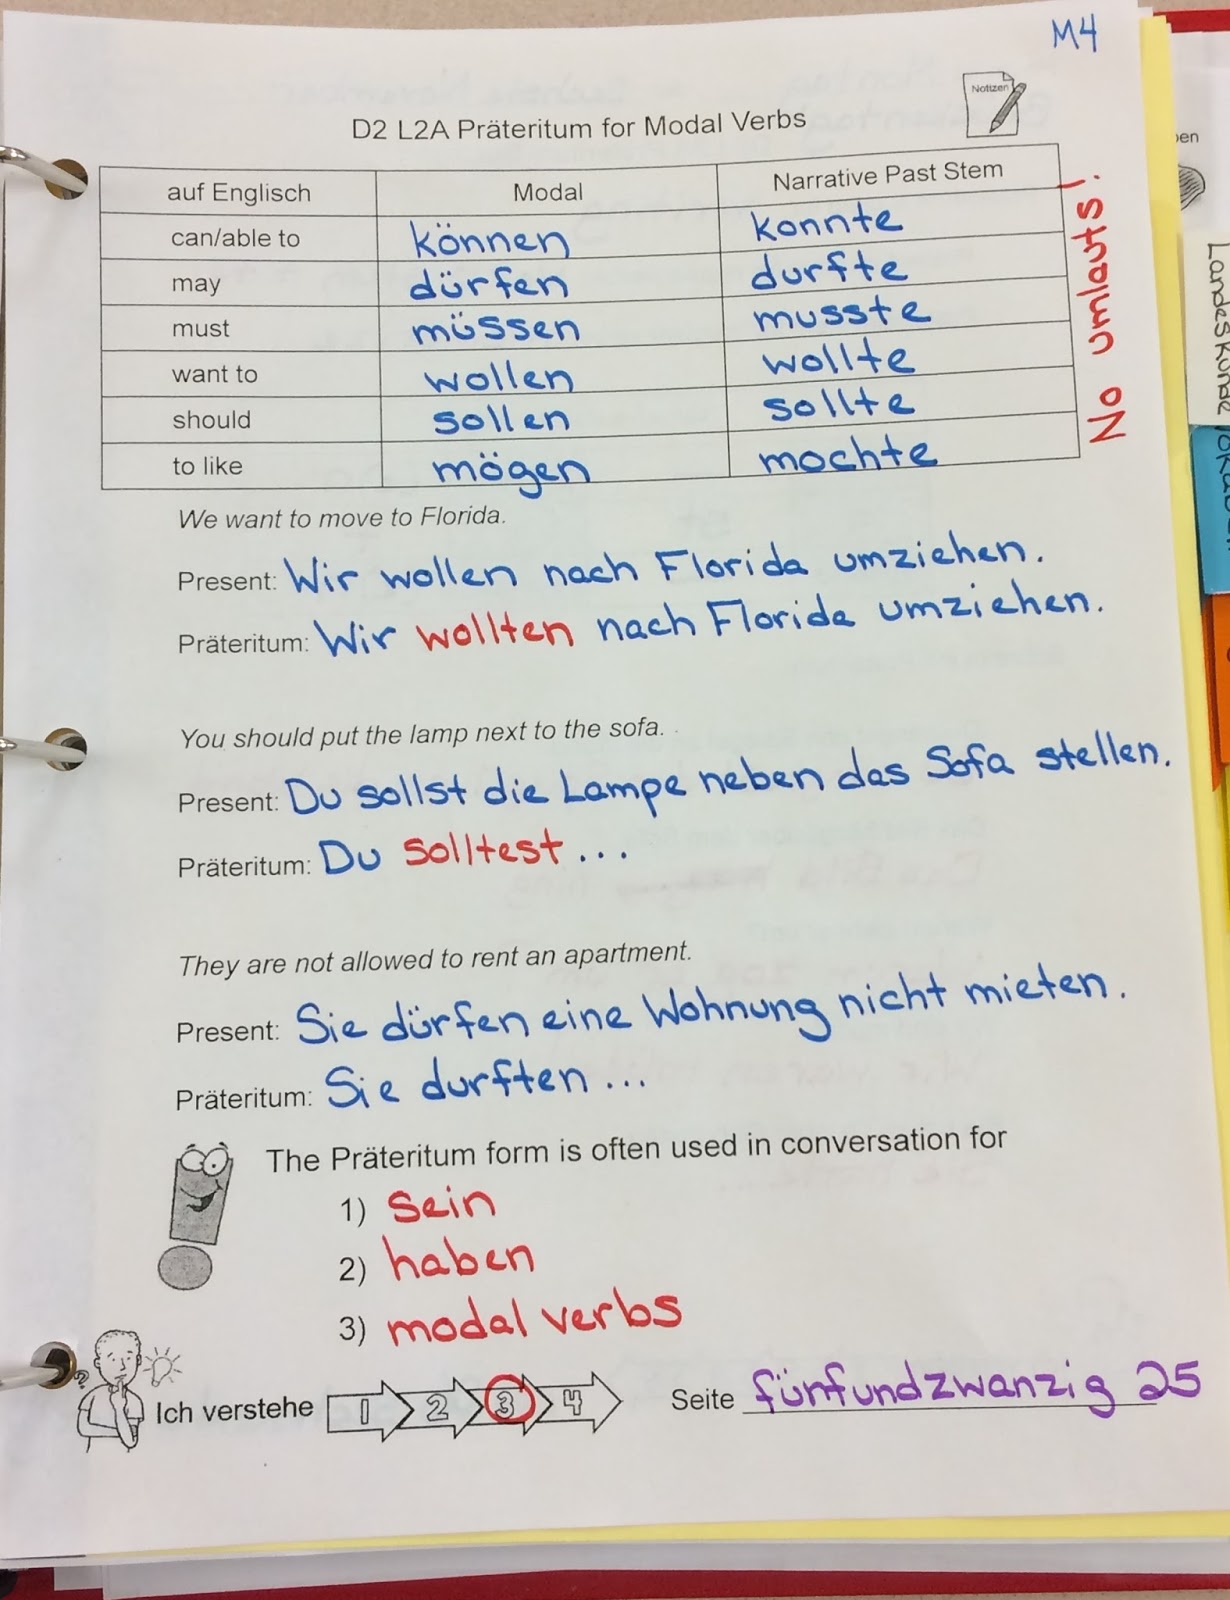 M4
Notizen
D2 L2A Präteritum for Modal Verbs
auf Englisch Modal Narrative Past Stem
can/able to können konnte
may dürfen durfte
must müssen musste
want to wollen wollte
should sollen sollte
to like mögen mochte
No umlauts!
We want to move to Florida.
Present: Wir wollen nach Florida umziehen.
Präteritum: Wir wollten nach Florida umziehen.
You should put the lamp next to the sofa.
Present: Du sollst die Lampe neben das Sofa stellen.
Präteritum: Du solltest...
They are not allowed to rent an apartment.
Present: Sie dürfen eine Wohnung nicht mieten.
Präteritum: Sie durften...
The Präteritum form is often used in conversation for
1) sein
2) haben
3) modal verbs
Ich verstehe 1 2 3 4 Seite fünfundzwanzig 25
Landeskunde